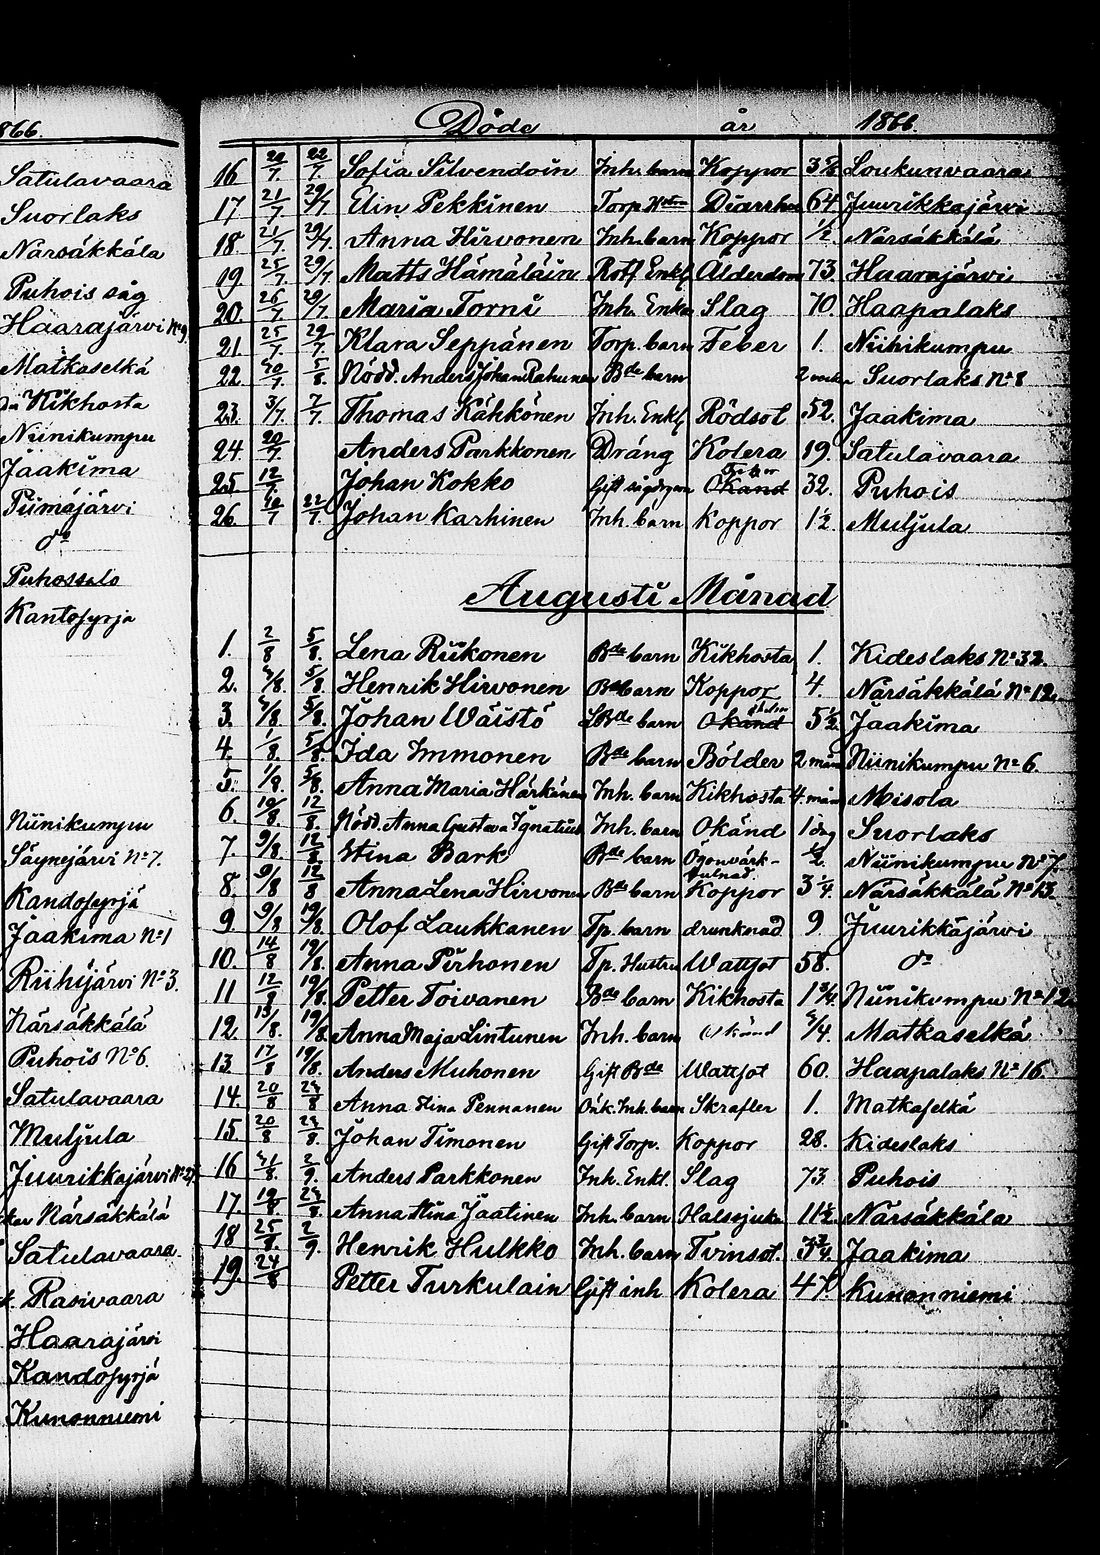 866.
Satulavaara
Suorlaks
Närsäkkälä
Puhois såg
Haarajärvi No 9
Matkaselkä
Kikhosta
Niinikumpu
Jaakima
Piimäjärvi
do
Puhossalo
Kantosyrjä
Niinikumpu
Säynejärvi No 7.
Kandosyrjä
Jaakima No 1
Riihijärvi No 3.
Närsäkkälä
Puhois No 6.
Satulavaara
Muljula
Juurikkajärvi No 27
Närsäkkälä
Satulavaara.
Rasivaara
Haarajärvi
Kandosyrjä
Kunonniemi
Döde år 1866.
16 20/7. 22/7. Sofia Silvendoin Inh. barn Koppor 3 Loukunvaara
17 21/7 29/7 Elin Pekkinen Torp. Diarrhe 64 Juurikkajärvi
18. 21/7. 29/7. Anna Hirvonen Inh. barn Koppor 1/2 Närsäkkälä
19 25/7. 29/7. Matts Hämäläin Rotf. Enkl Ålderdom 73. Haarajärvi
20. 26/7 29/7. Maria Torni Inh. Enka Slag 70. Haapalaks
21. 25/7. 29/7. Klara Seppänen Torp. barn Feber 1. Niinikumpu
22. 30/7. 5/8. Nödd. Anders Johan Rahunen Bde barn 2 veckor Suorlaks No 8
23. 3/7. 7/7. Thomas Kähkönen Inh. Enkl Rödsot 52. Jaakima
24. 20/7. Anders Parkkonen Dräng Kolera 19. Satulavaara
25 12/7. Johan Kokko Gift Okänd Feber 32. Puhois
26. 10/7 22/7. Johan Karhinen Inh. barn Koppor 1 1/2 Muljula
Augusti Månad
1. 2/8 5/8. Lena Riikonen Bde barn Kikhosta 1. Kideslaks No 32.
2. 4/8. 5/8. Henrik Hirvonen Bde barn Koppor 4. Närsäkkälä No 12.
3. 4/8. 5/8. Johan Wäistö Bde barn Okänd 5 1/2. Jaakima
4. 1/8. 5/8. Ida Immonen Bde barn Bölder 2 mån Niinikumpu No 6.
5. 1/8. 5/8. Anna Maria Härkänen Inh. barn Kikhosta 4 mån Misola
6. 10/8. 12/8. Nödd. Anna Gustava Ignatius Inh. barn Okänd 1 dag Suorlaks
7. 9/8. 12/8. Stina Bark Bde barn Ögonvärk- 1/2. Niinikumpu No 7.
8. 9/8 12/8 Anna Lena Hirvonen Bde barn Koppor 3 1/4. Närsäkkälä No 13.
9. 9/8 19/8. Olof Laukkanen Tp. barn drunknad 9 Juurikkajärvi
10. 14/8 19/8. Anna Pirhonen Tp. Hustru Wattsot 58. do
11 12/8 19/8. Petter Toivanen Bde barn Kikhosta 1 3/4. Niinikumpu No 12.
12. 13/8. 19/8. Anna Maja Lintunen Inh. barn Okänd 3/4 Matkaselkä
13. 17/8 19/8. Anders Muhonen Gift Bde Wattsot 60. Haapalaks No 16.
14. 20/8 28/8 Anna Stina Pennanen Oäk. Inh. barn Skrafler 1. Matkaselkä
15. 20/8 28/8. Johan Timonen Gift Torp. Koppor 28. Kideslaks
16 31/8. 2/9. Anders Parkkonen Inh. Enkl. Slag 73. Puhois
17. 19/8 28/8. Anna Stina Jaatinen Inh. barn Halssjuka 11 1/2. Närsäkkälä
18 25/8. 2/9 Henrik Hulkko Inh. barn Tvinsot. 3 3/4. Jaakima
19. 24/8 Petter Turkulain Gift inh Kolera 47. Kunonniemi